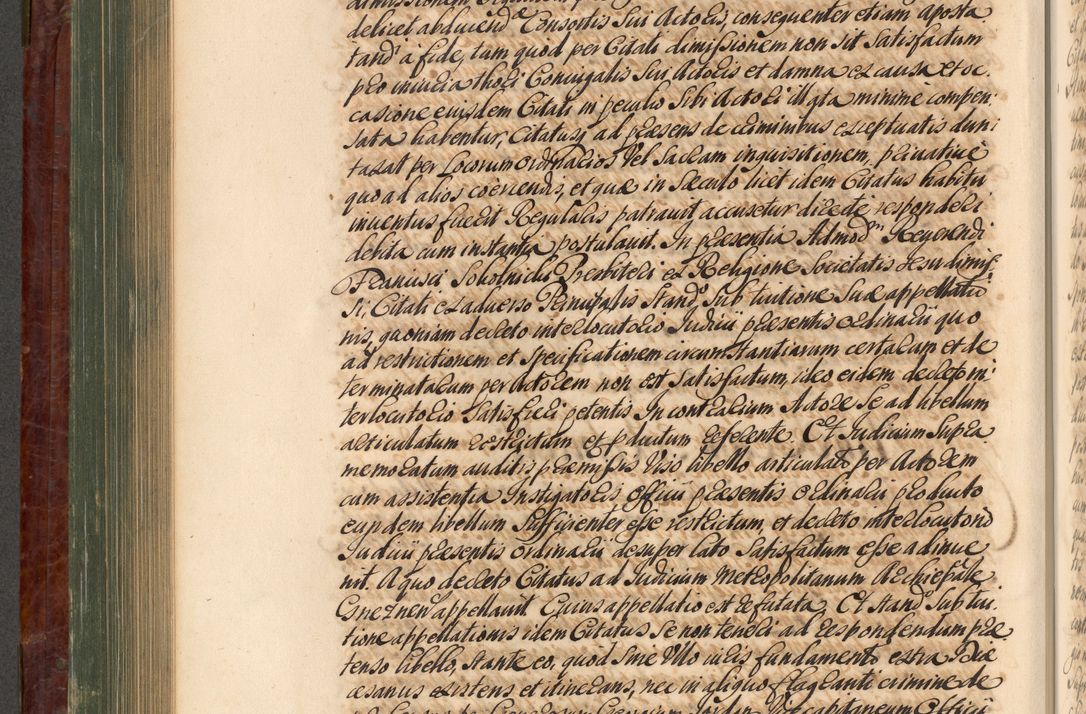 delicet abducend Consortis Sui Actoris, consequenter etiam aposta
tand à fide, tum quod per Citati dimissionem non sit Satisfactum
pro iniuria thori Coniugalis Sui Actoris et damna ex causa et oc:
casione eiusdem Citati in peculio Sibi Actori illata minime compen:
sata habentur, Citatus ad præsens de criminibus exceptuatis dun:
taxat per Locorum ordinarios Vel Sacram inquisitionem, privative
quo ad alios coercendis, et quæ in Sæculo licet idem Citatus habitu
inventus fuerit Regularis patravit accusetur directe responderi
debita cum instantia postulavit. In præsentia Admod Reverendi
Francisci Sokolnicki Presbiteri ex Religione Societatis Jesu dimis:
Si, Citati ex adverso Principalis Stand Sub tuitione Suæ appellatio
nis, quoniam decreto interlocutorio Judicii præsentis ordinarii quo
ad restrictionem et Specificationem circumstantiarum certarum et de
terminatarum per Actorem non est Satisfactum, ideo eidem decreto in:
terlocutorio Satisfieri petentis In contrarium Actore Se ad libellum
articulatum restrictum et productum referente. Et Judicium Supra
memoratum auditis præmissis Viso libello articulato per Actorem
cum assistentia Instigatoris officii præsentis ordinarii producto
eundem libellum Sufficienter esse restrictum, et decreto interlocutorio
Judicii præsentis ordinarii desuper lato Satisfactum esse adinve
nit. A quo decreto Citatus ad Judicium Metropolitanum Archiepale
Gneznen appellavit Cuius appellatio est refutata, Et stand Sub tui
tione appellationis idem Citatus Se non teneri ad respondendum præ
tenso libello, Stante eo, quod Sine Ullo iuris fundamento extra Diæ
cesanus existens et itinerans, nec in aliquo flagranti crimine de